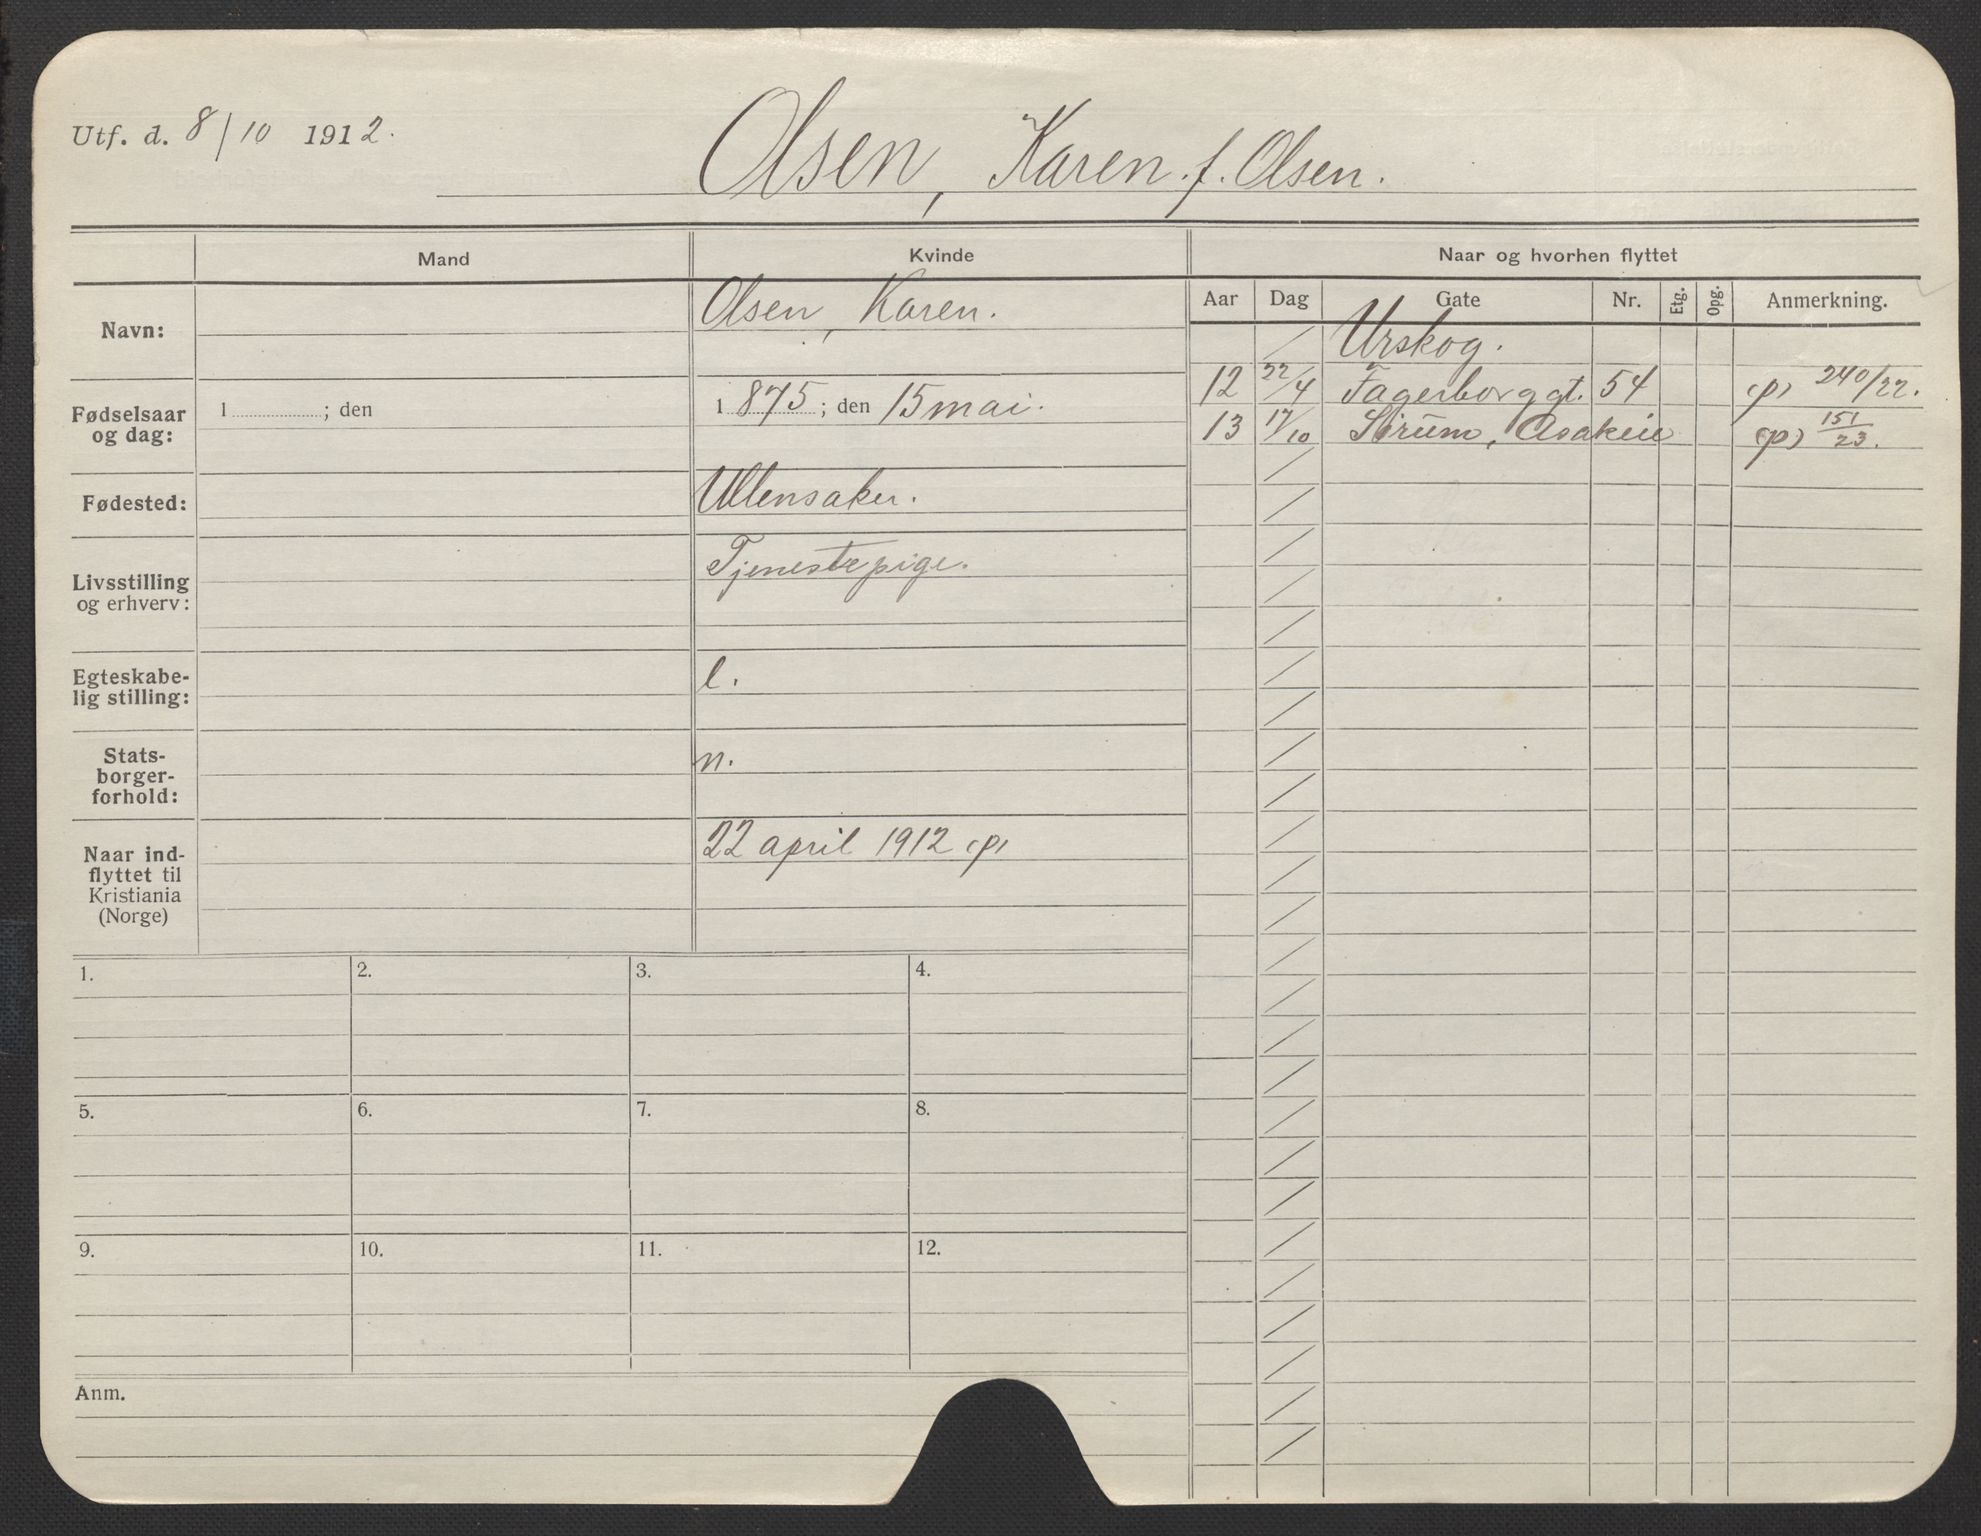 Utf. d. 8/10 1912.
Olsen, Karen. f. Olsen.
Mand
Kvinde
Naar og hvorhen flyttet
Aar Dag Gate Nr. Etg. Opg. Anmerkning.
Navn:
Olsen, Karen.
Fødselsaar og dag:
1 ; den
1 875 ; den 15 mai.
Fødested:
Ullensaker.
Livsstilling og erhverv:
Tjenestepige.
Egteskabe-
lig stilling:
l.
Stats-
borger-
forhold:
n.
Naar ind-
flyttet til
Kristiania
(Norge)
22 april 1912 (p)
Urskog.
12 22/4 Fagerborggt. 54 (p) 240/22.
13 17/10 Sørum, (p) 151/23.
1. 2. 3. 4.
5. 6. 7. 8.
9. 10. 11. 12.
Anm.